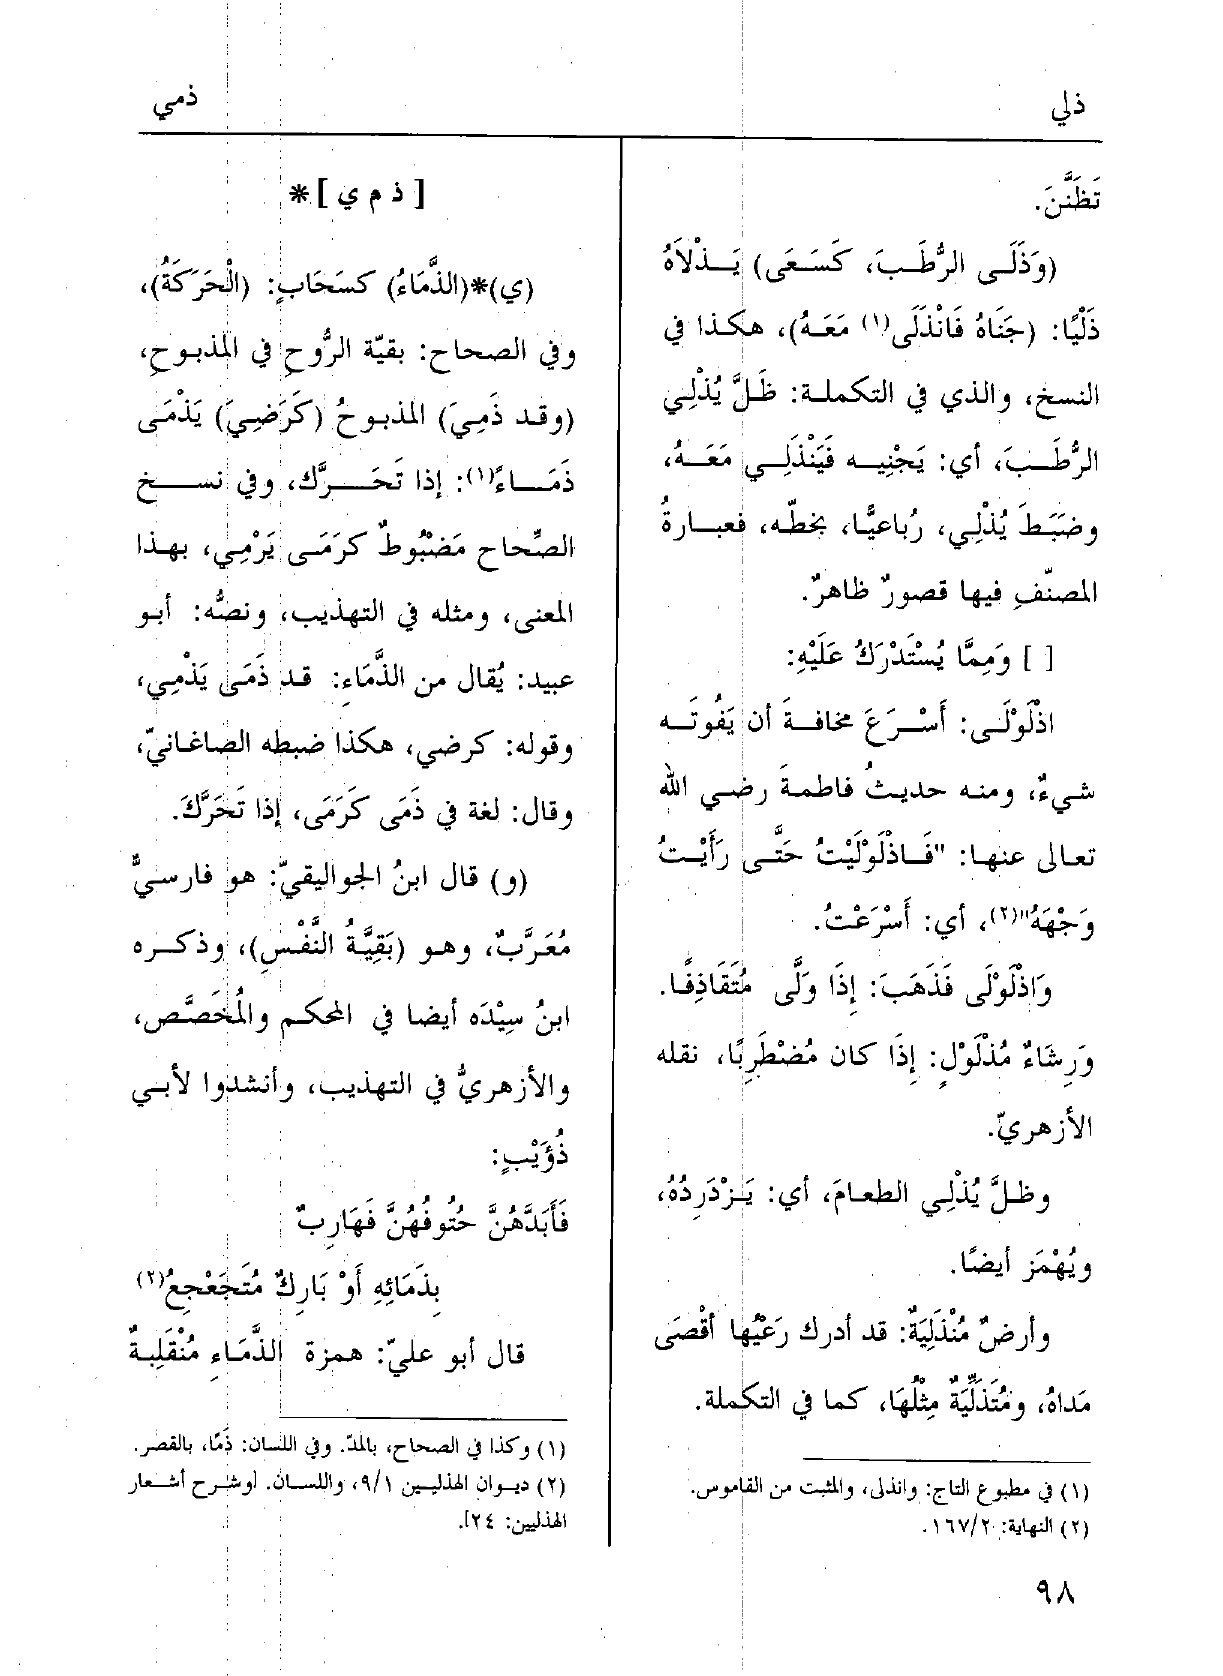 ذلي
ذمي
تَظَنَّنَ.
(وَذَلَى الرُّطَب، كَسَعَى) يَذْلاَهُ
ذَلْيًا: (جَنَاهُ فَانْذَلَى(١) مَعَهُ)، هكذا في
النسخ، والذي في التكملة: ظَلَّ يُذْلِي
الرُّطَبَ، أي: يَجْنِيه فَيَنْذَلِي مَعَهُ،
وضَبَطَ يُذْلِي، رُباعيًّا، بخطّه، فعبارةُ
المصنّفِ فيها قصورٌ ظاهرٌ.
[ ] وَمِمَّا يُسْتَدْرَكُ عَلَيْهِ:
اذْلَوْلَى: أَسْرَعَ مخافةَ أن يَفُوتَه
شيءٌ، ومنه حديثُ فاطمةَ رضي الله
تعالى عنها: "فَاذْلَوْلَيْتُ حَتَّى رَأَيْتُ
وَجْهَهُ"(٢)، أي: أَسْرَعْتُ.
وَاذْلَوْلَى فَذَهَبَ: إِذَا وَلَّى مُتَقَاذِفًا.
وَرِشَاءٌ مُذْلَوْلٍ: إِذَا كان مُضْطَرِبًا، نقله
الأزهريّ.
وظلَّ يُذْلِي الطعامَ، أي: يَزْدَرِدُهُ،
ويُهْمَز أيضًا.
وأرضٌ مُنْذَلِيَةٌ: قد أدرك رَعْيُها أقْصَى
مَداهُ، ومُتَذَلِّيَةٌ مِثْلُهَا، كما في التكملة.
(١) في مطبوع التاج: وانذلى، والمثبت من القاموس.
(٢) النهاية: ١٦٧/٢.
[ ذ م ي ]*
(ي)*(الذَّمَاءُ) كسَحَابٍ: (الْحَرَكَةُ)،
وفي الصحاح: بقيّة الرُّوحِ في المذبوحِ،
(وقد ذَمِيَ) المذبوحُ (كَرَضِيَ) يَذْمَى
ذَمَاءً(١): إذا تَحَرَّك، وفي نسخ
الصِّحاح مَضْبُوطٌ كَرَمَى يَرْمِي، بهذا
المعنى، ومثله في التهذيب، ونصُّه: أبو
عبيد: يُقال من الذَّمَاءِ: قد ذَمَى يَذْمِي،
وقوله: كرضي، هكذا ضبطه الصاغانيّ،
وقال: لغة في ذَمَى كَرَمَى، إذا تَحَرَّكَ.
(و) قال ابنُ الجواليقيّ: هو فارسيٌّ
مُعَرَّبٌ، وهو (بَقِيَّةُ النَّفْسِ)، وذكره
ابنُ سِيْدَه أيضا في المحكم والمُخَصَّص،
والأزهريُّ في التهذيب، وأنشدوا لأبي
ذُؤَيْبٍ:
فَأَبَدَّهُنَّ حُتُوفَهُنَّ فَهَارِبٌ
بِذَمَائِهِ أَوْ بَارِكٌ مُتَجَعْجِعُ(٢)
قال أبو عليّ: همزة الذَّمَاءِ مُنْقَلِبةٌ
(١) وكذا في الصحاح، بالمدّ. وفي اللسان: ذَمًا، بالقصر.
(٢) ديوان الهذليين ٩/١، واللسان. [وشرح أشعار
الهذليين: ٢٤].
٩٨